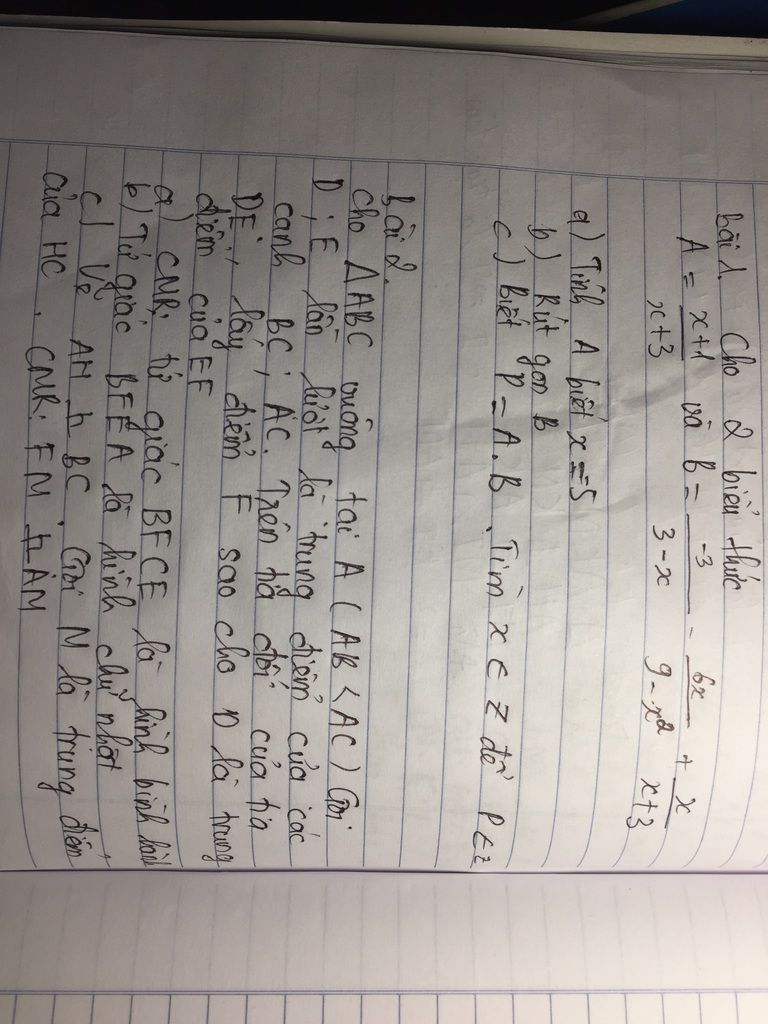 bài 1. Cho 2 biểu thức
A = x+1/x+3 và B = -3/3-x - 6x/9-x² + x/x+3
a) Tính A biết x=5
b) Rút gọn B
c) Biết P = A.B. Tìm x ∈ Z để P ∈ Z
bài 2.
Cho ΔABC vuông tại A (AB < AC) Gọi
D, E lần lượt là trung điểm của các
cạnh BC, AC. Trên tia đối của tia
DE, lấy điểm F sao cho D là trung
điểm của EF
a) CNR: tứ giác BFCE là hình bình hành
b) Tứ giác BFEA là hình chữ nhật
c) Vẽ AH ⊥ BC. Gọi M là trung điểm
của HC. CNR: FM ⊥ AM